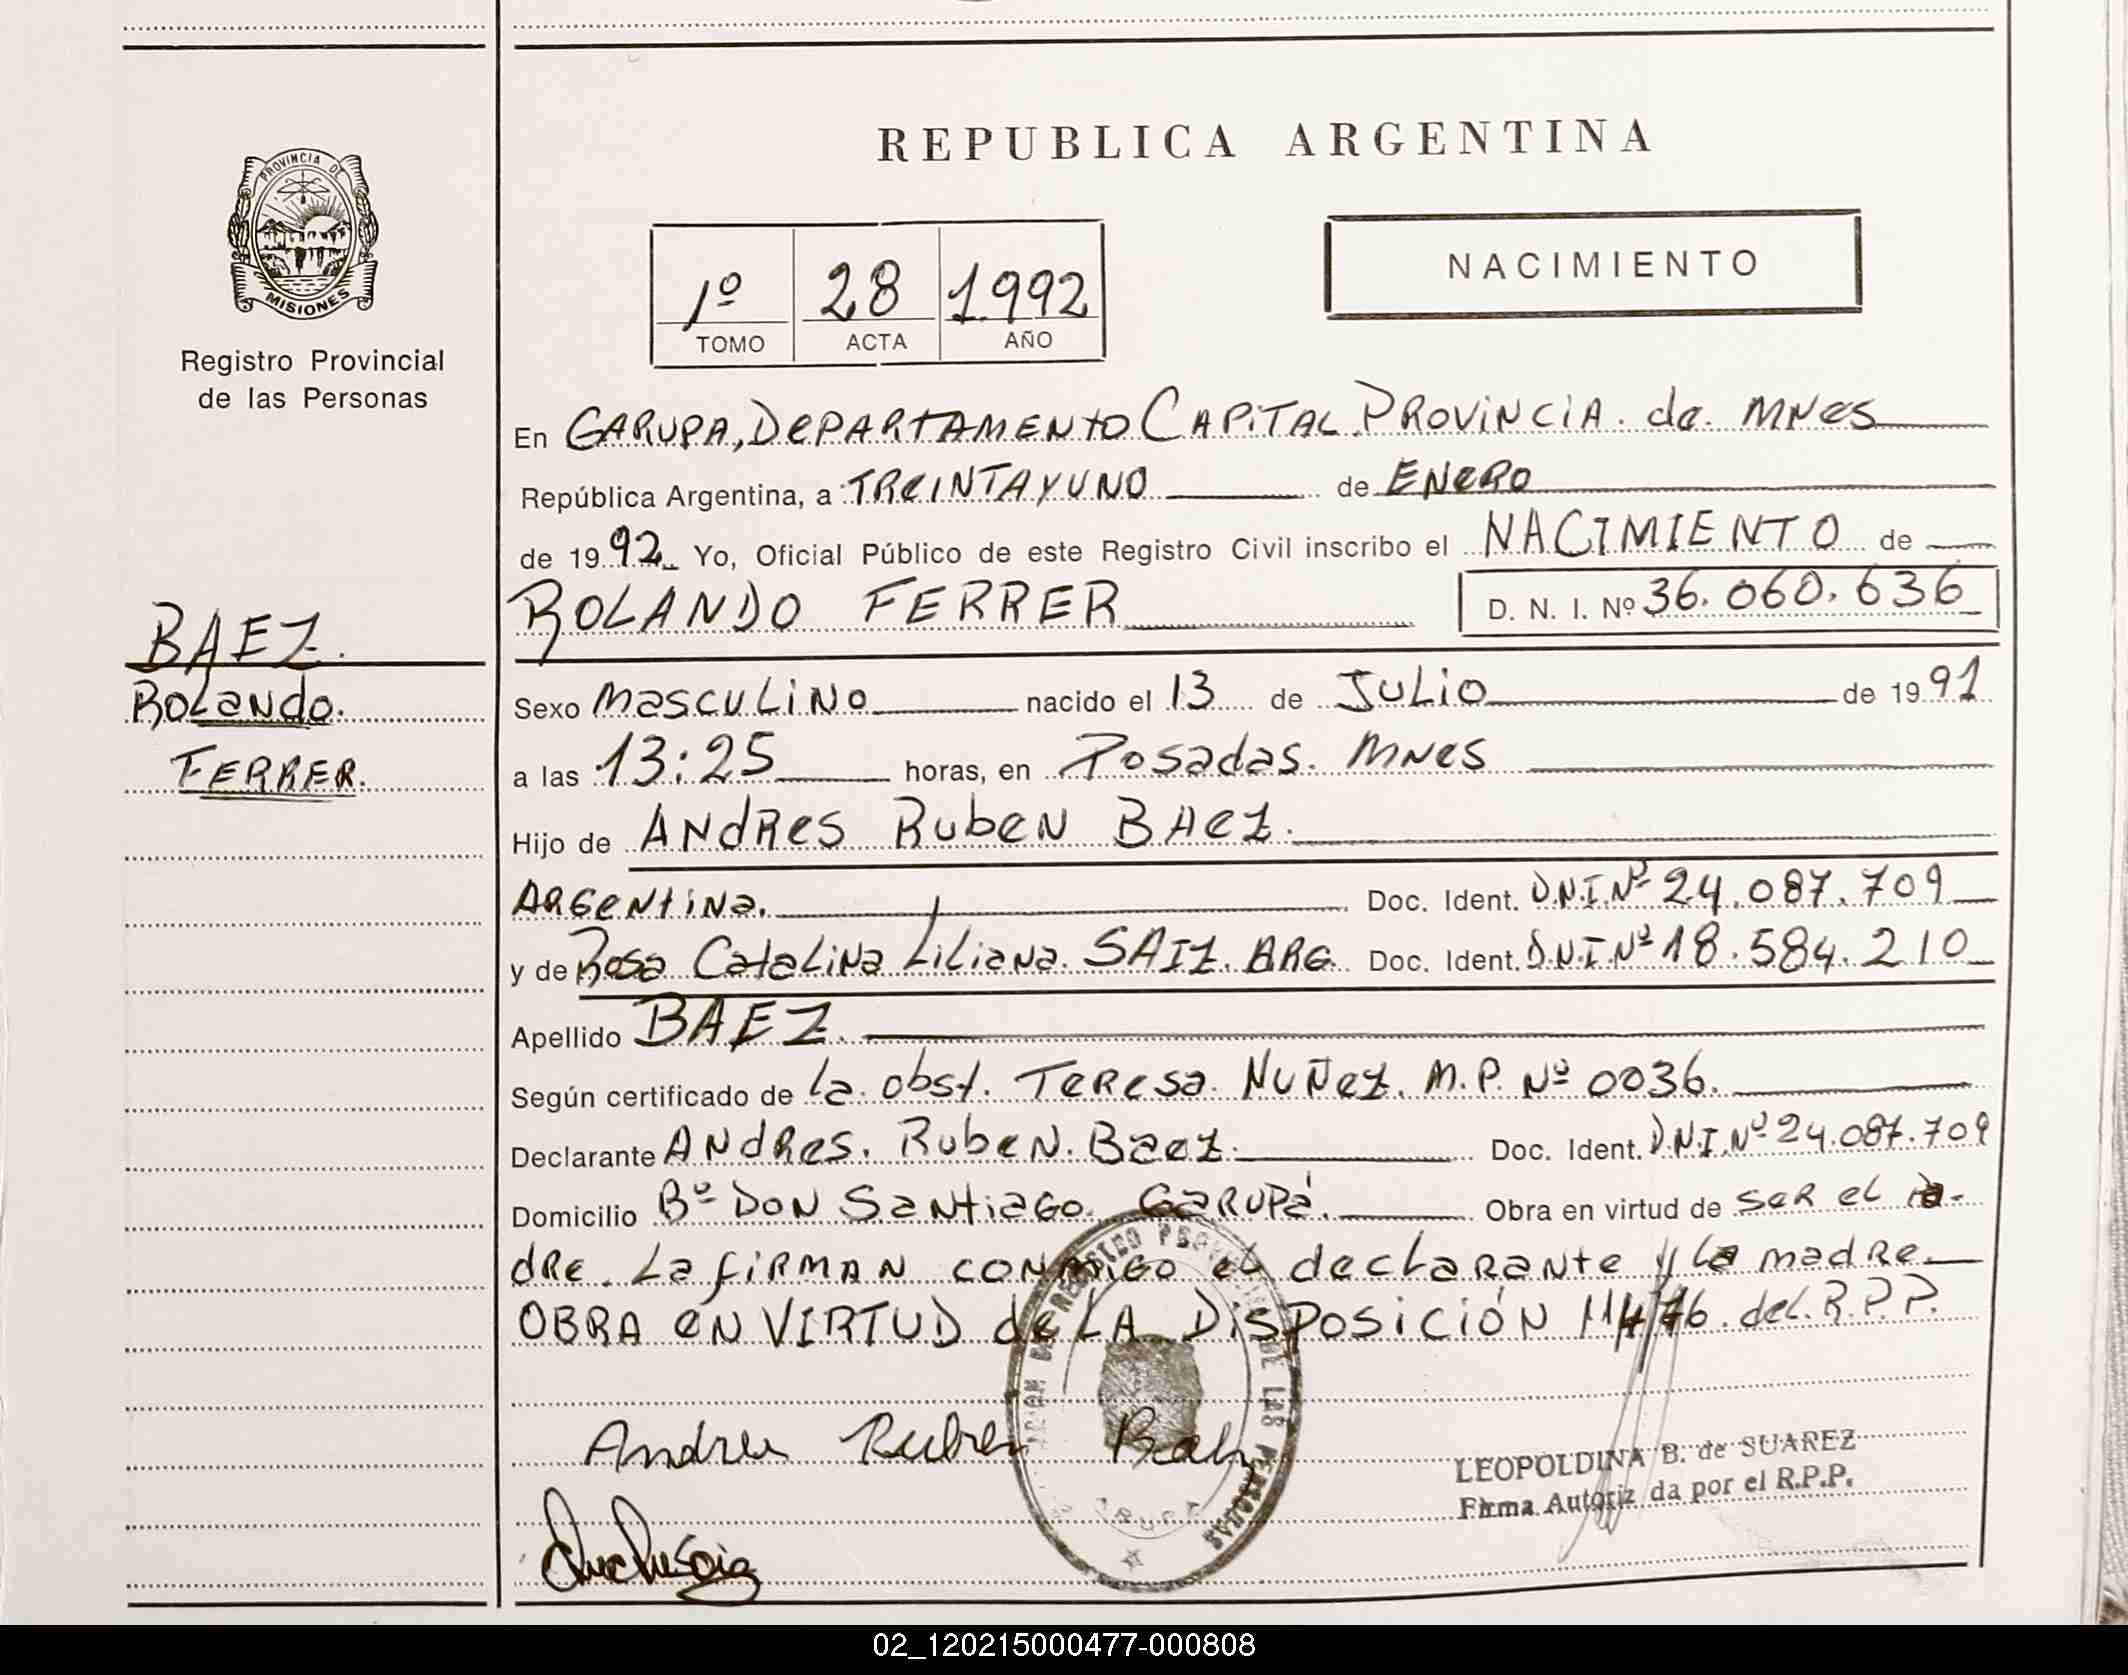 PROVINCIA DE
MISIONES
Registro Provincial
de las Personas
BAEZ.
Rolando.
FERRER.
REPUBLICA ARGENTINA
1º 28 1992
TOMO ACTA AÑO
NACIMIENTO
En GARUPA, DEPARTAMENTO CAPITAL PROVINCIA de MNES
República Argentina, a TREINTA Y UNO de ENERO
de 1992 Yo, Oficial Público de este Registro Civil inscribo el NACIMIENTO de
ROLANDO FERRER D. N. I. Nº 36.060.636
Sexo masculino nacido el 13 de Julio de 1991
a las 13:25 horas, en Posadas. MNES
Hijo de ANDRES RUBEN BAEZ.
ARGENTINA. Doc. Ident. D.N.I.Nº 24.087.709
y de Rosa Catalina Liliana SAIZ. ARG. Doc. Ident. D.N.I.Nº 18.584.210
Apellido BAEZ.
Según certificado de la obst. Teresa Nuñez. M.P. Nº 0036.
Declarante ANDRES. RUBEN. Baez. Doc. Ident. D.N.I.Nº 24.087.709
Domicilio Bº DON Santiago. GARUPÁ. Obra en virtud de ser el pa-
dre. La firman conmigo el declarante y la madre.
OBRA EN VIRTUD de LA DISPOSICIÓN del R.P.P.
Andres Ruben Baez
LEOPOLDINA B. de SUAREZ
Firma Autorizada por el R.P.P.
REGISTRO PROVINCIAL DE LAS PERSONAS
02_120215000477-000808